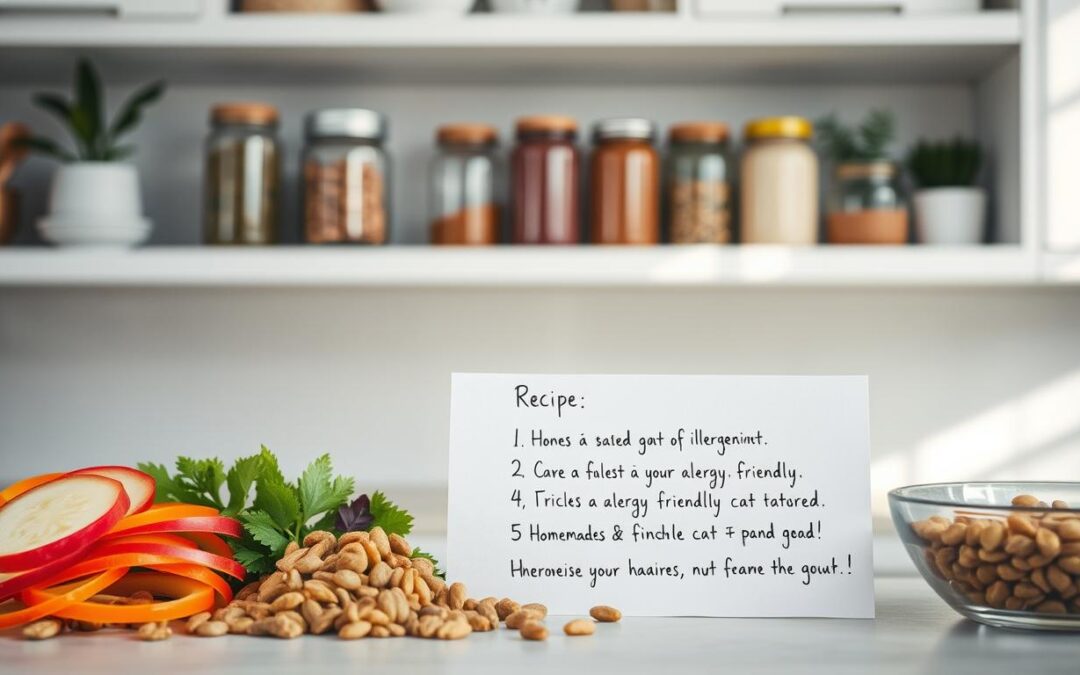 Recipe:
1. Hones á saled gat of illergenint.
2. Care a falest à your alergy. friendly.
4, Tricles a alergy friendlly cat tatored.
5 Homemades & finchle cat F pand gead!
Hnerореise your haaires, nut feane the gout.!